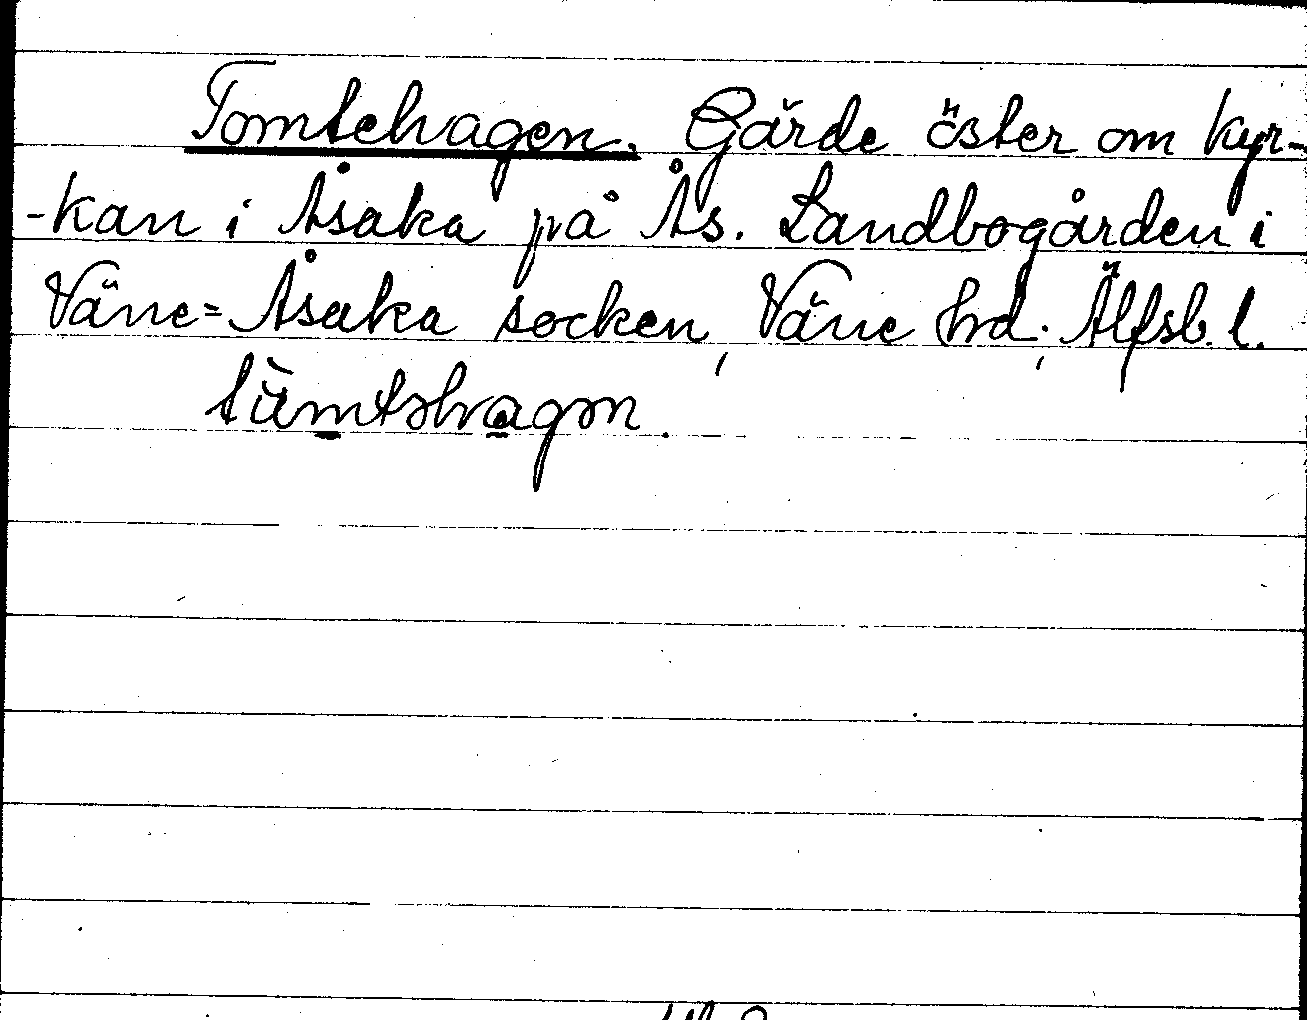 Tomtehagen. Gärde öster om kyr-
-kan i Åsaka på Ås. Landbogården i
Väne=Åsaka socken, Väne hrd; Älfsb. l.